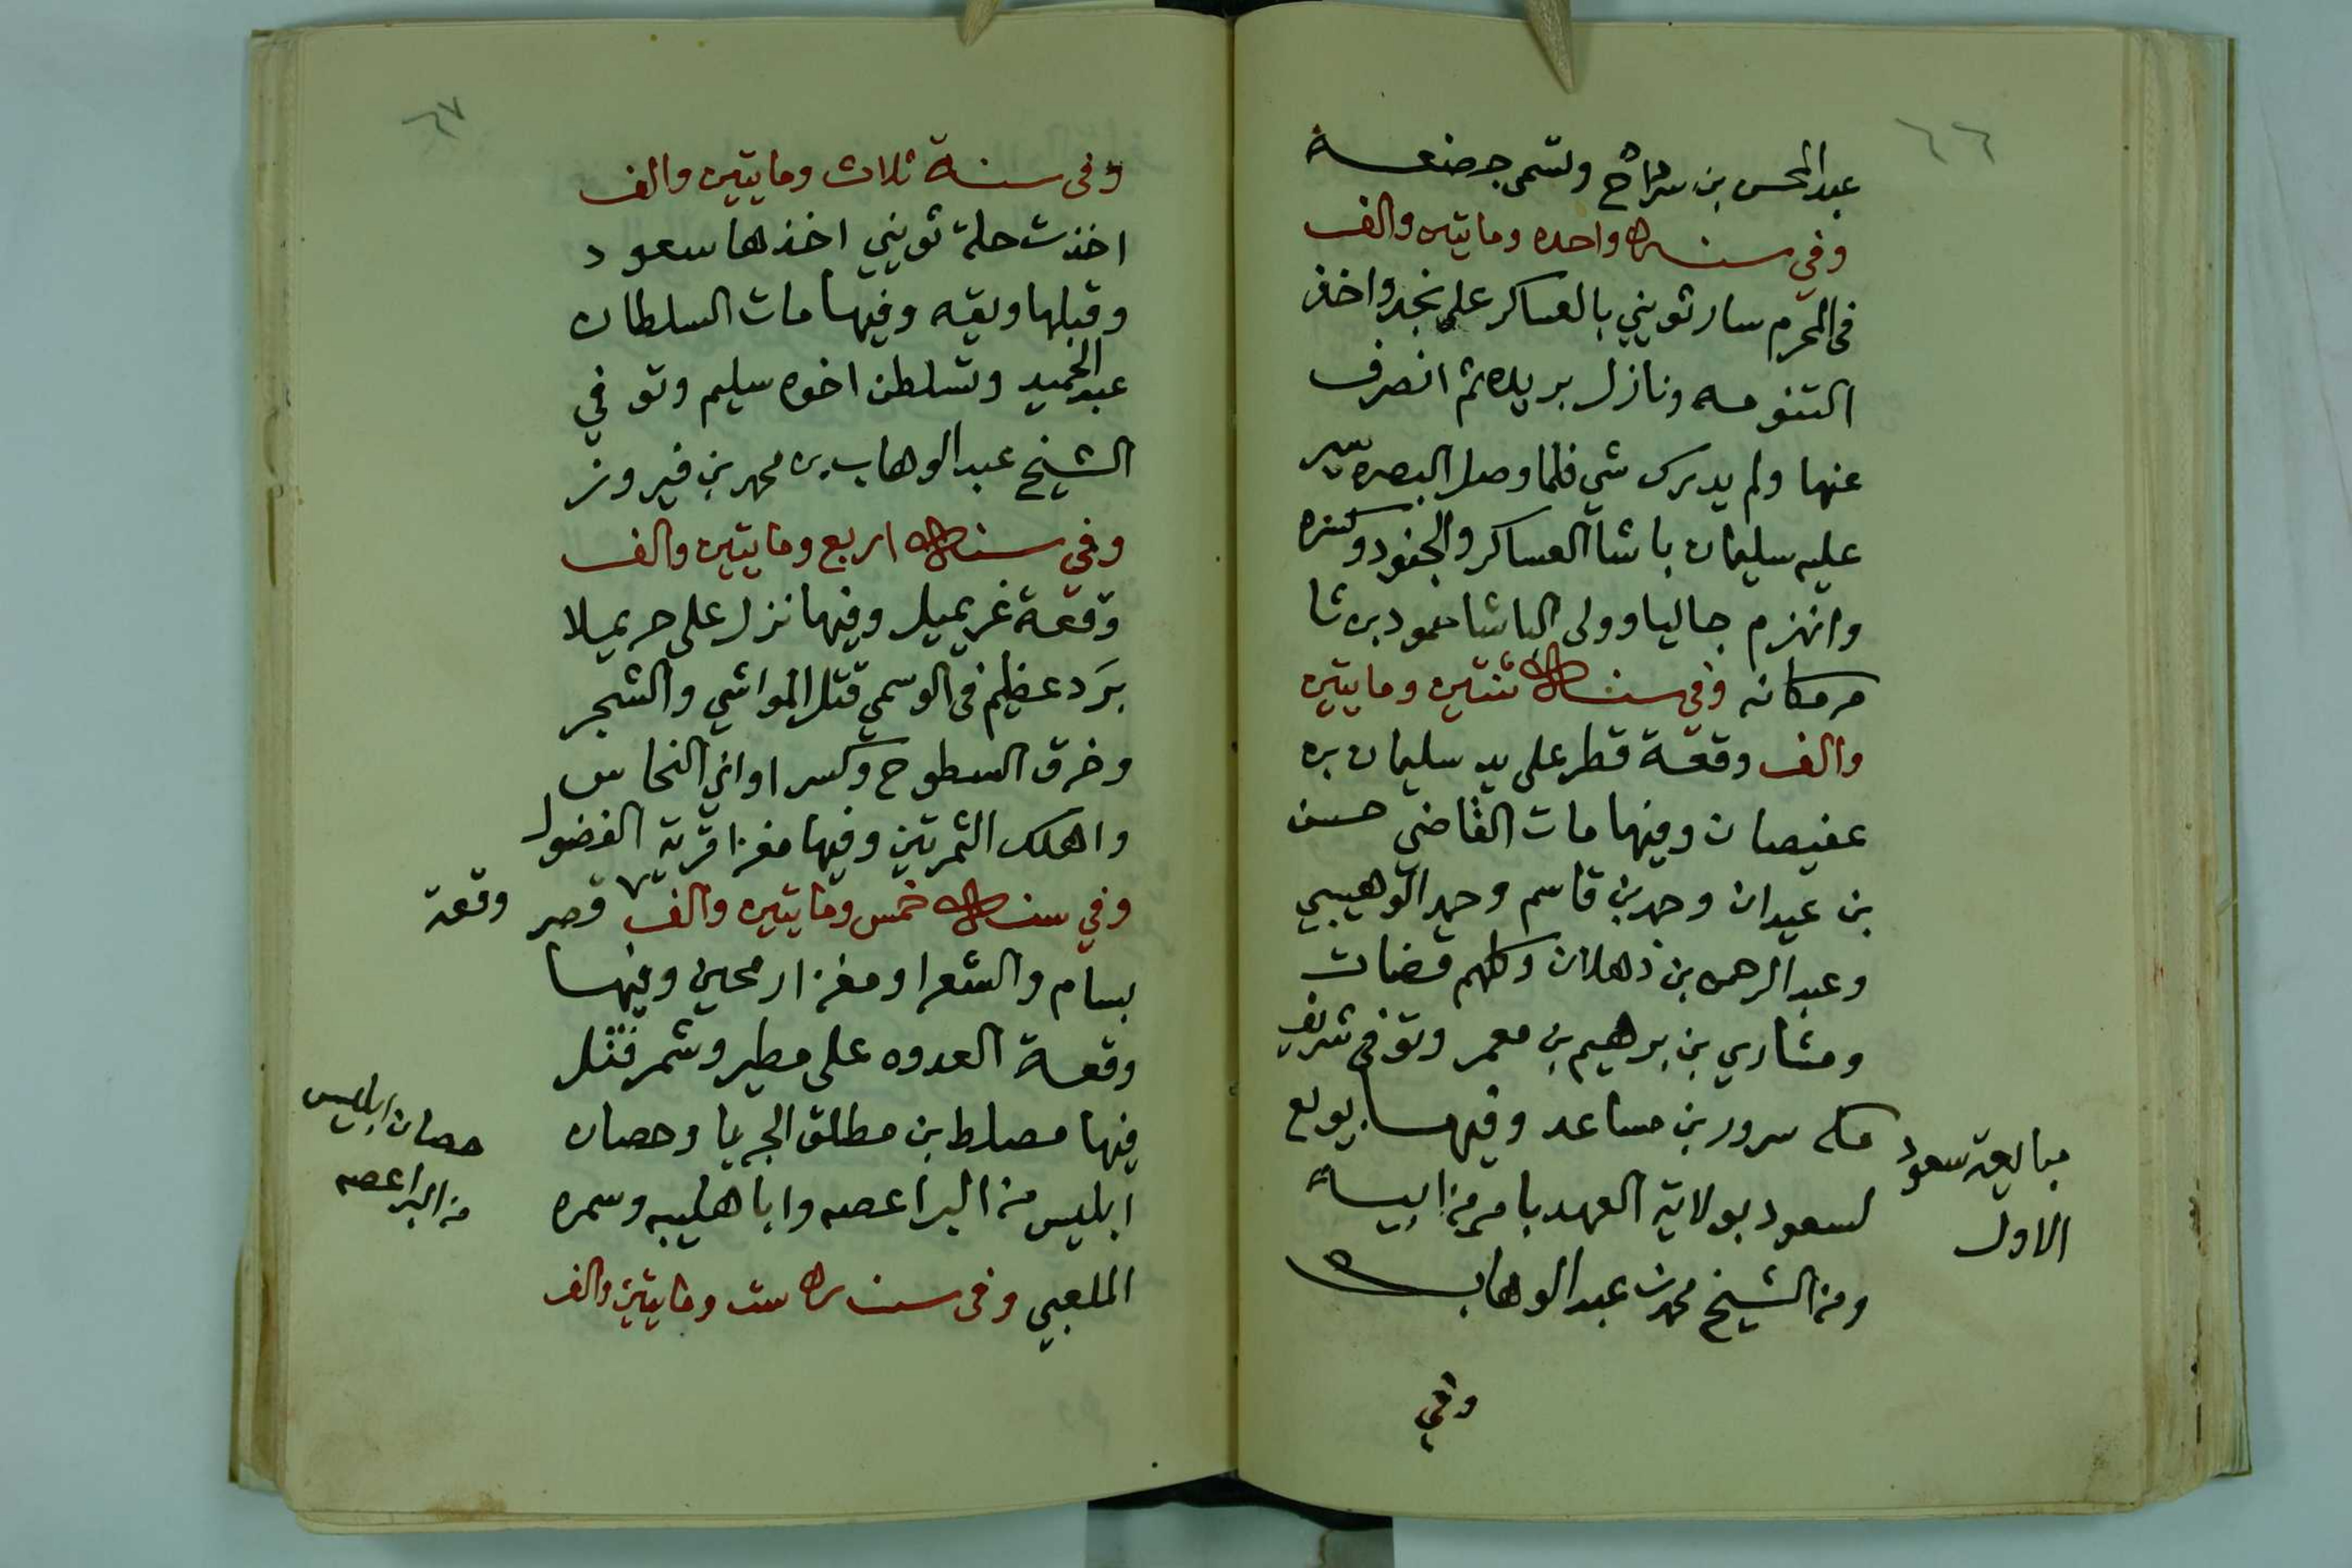 ٦٦
عبد المحسن بن سرداح وتسمى جضعة
وفي سنة واحده ومايتين والف
في المحرم سار ثويني بالعساكر على نجد واخذ
التنومه ونازل بريده ثم انصرف
عنها ولم يدرك شي فلما وصل البصره سير
عليه سليمان باشا العساكر والجنود وكسره
وانهزم جاليا وولى الباشا حمود بن ثا
مر مكانه وفي سنة ثنتين ومايتين
والف وقعة قطر على يد سليمان بن
عفيصان وفيها مات القاضي حسن
بن عيدان وحمد بن قاسم وحمد الوهيبي
وعبد الرحمن بن ذهلان وكلهم قضات
ومشاري بن برهيم بن معمر وتوفي شريف
مكه سرور بن مساعد وفيها بويع
لسعود بولاية العهد بامر من ابيه
ومن الشيخ محمد بن عبد الوهاب
مبايعة سعود
الاول
وفي
٦٧
وفي سنة ثلاث ومايتين والف
اخذت حلة ثويني اخذها سعود
وقبلها وبقه وفيها مات السلطان
عبد الحميد وتسلطن اخوه سليم وتوفي
الشيخ عبد الوهاب بن محمد بن فيروز
وفي سنة اربع ومايتين والف
وقعة غريميل وفيها نزل على حريملا
برد عظيم في الوسمي قتل المواشي والشجر
وخرق السطوح وكسر اواني النحاس
واهلك الثمرتين وفيها مغزا قرية الفضول
وفي سنة خمس ومايتين والف قصر
وقعة
بسام والشعرا ومغزا رمحين وفيها
وقعة العدوه على مطير وشمر فقتل
فيها مصلط بن مطلق الجربا وحصان
ابليس من البراعصه وابا هليبه وسمره
الملعبي وفي سنة ست ومايتين والف
حصان ابليس
من البراعصه